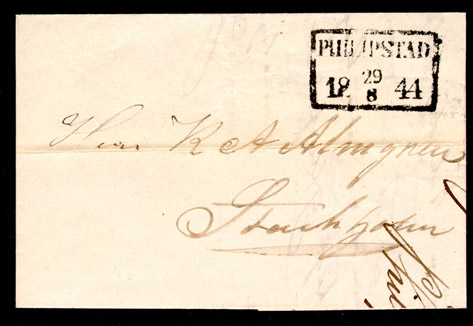 PHILIPSTAD
18 29/8 44
Herr K A Almgren
Stockholm